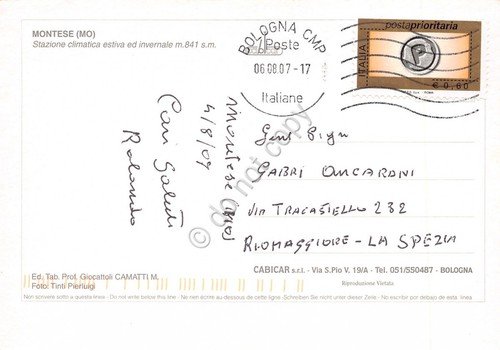 MONTESE (MO)
Stazione climatica estiva ed invernale m.841 s.m.
BOLOGNA CMP
Poste
06.08.07-17
Italiane
postaprioritaria
ITALIA
P
€ 0,60
Montese (MO)
4/8/07
Cari Saluti
Rolando
Gent. Sign
GABRI ONCARONI
VIA TRACASTELLO 232
RIOMAGGIORE - LA SPEZIA
CABICAR s.r.l. - Via S.Pio V, 19/A - Tel. 051/550487 - BOLOGNA
Ed. Tab. Prof. Giocattoli CAMATTI M.
Foto: Tinti Pierluigi
Riproduzione Vietata
Non scrivere sotto a questa linea - Do not write below this line - Ne rien écrire au-dessous de cette ligne - Schreiben Sie nicht unter dieser Zeile - No escribir por debajo de esta linea
do not copy